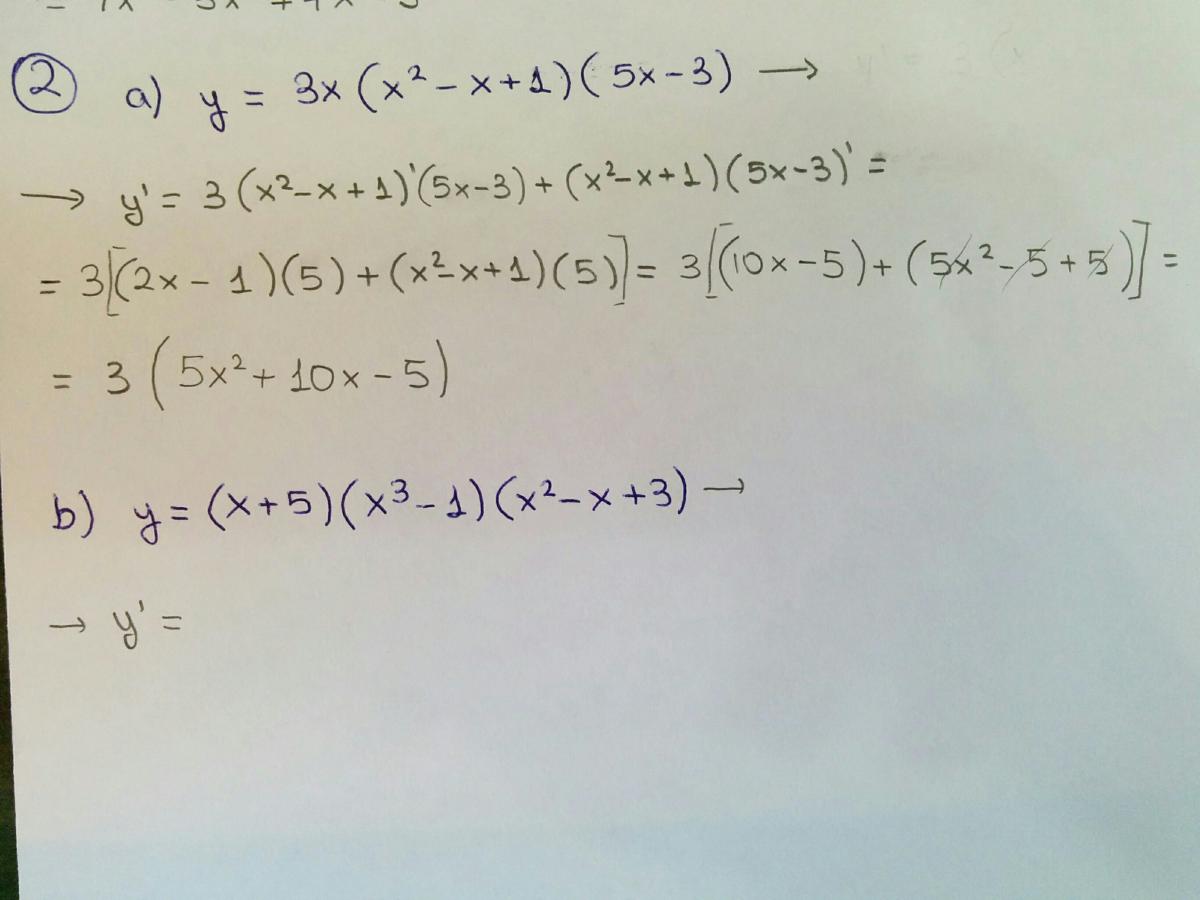 ② a) y = 3x (x² - x + 1) ( 5x - 3) →
→ y' = 3 (x² - x + 1)' (5x - 3) + (x² - x + 1) (5x - 3)' =
= 3 [(2x - 1) (5) + (x² - x + 1) (5)] = 3 [(10x - 5) + (5x² - 5 + 5)] =
= 3 (5x² + 10x - 5)
b) y = (x + 5) (x³ - 1) (x² - x + 3) →
→ y' =